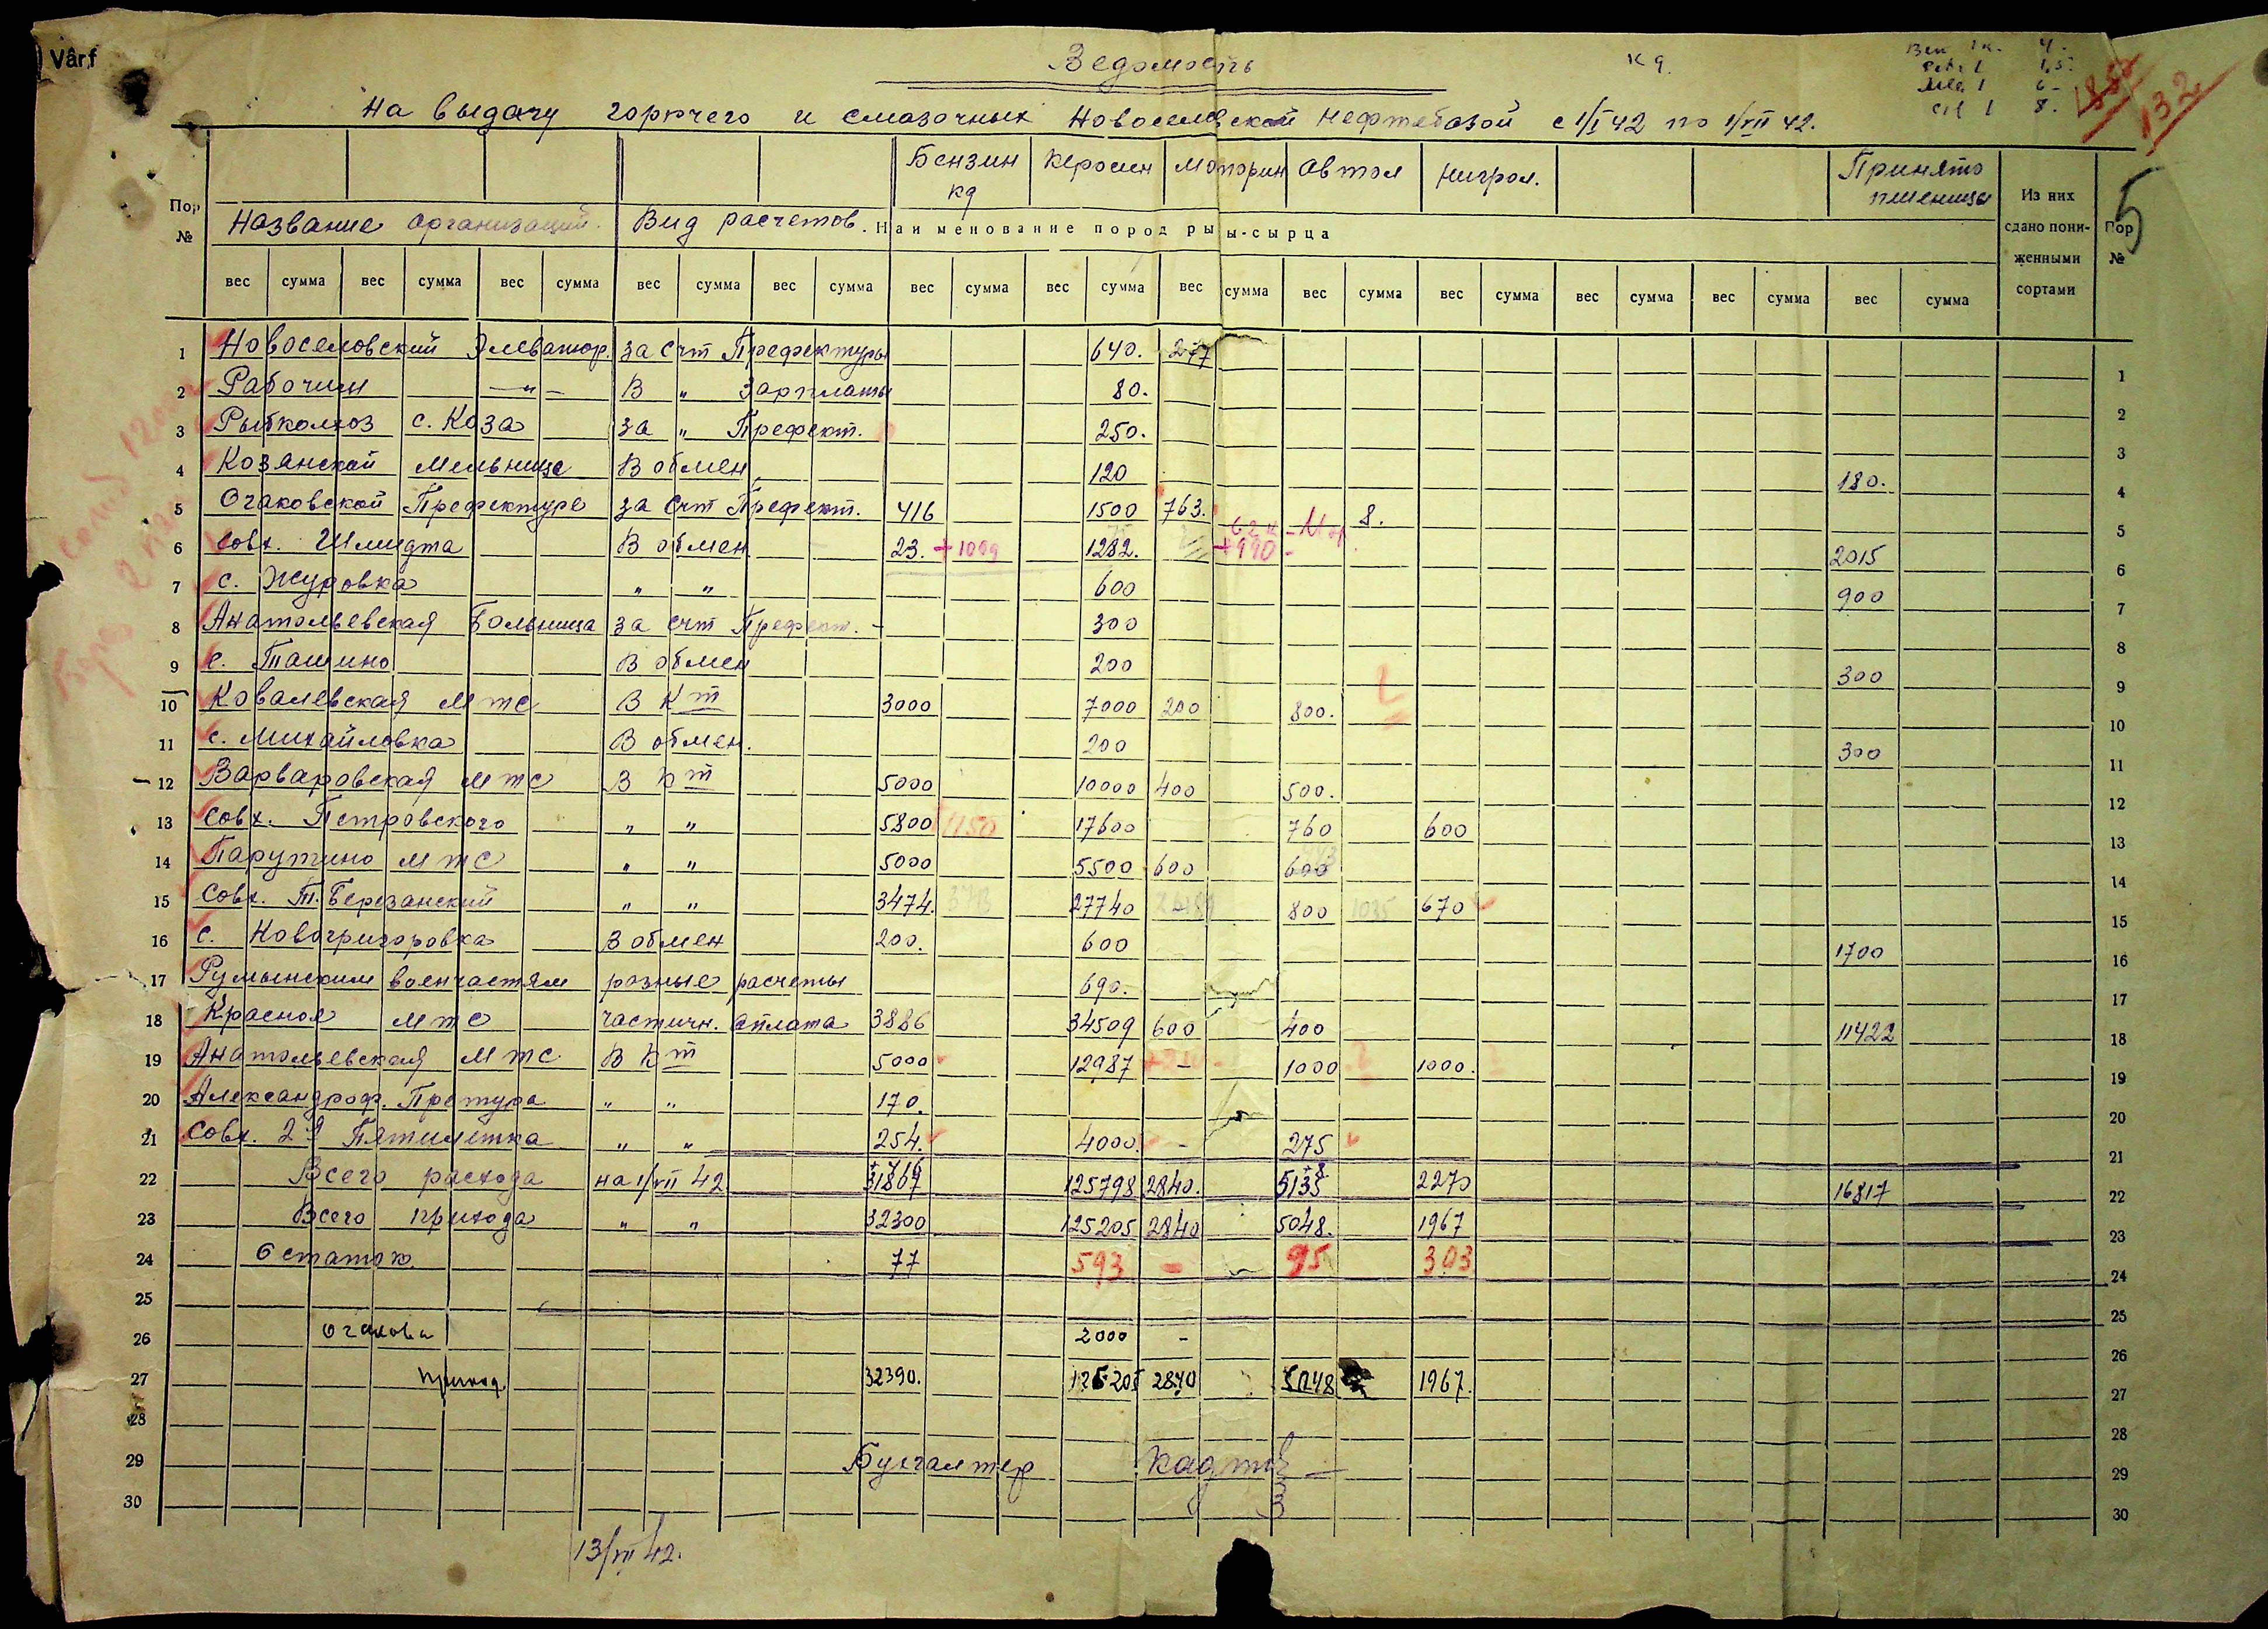 Vârf
Ведомость
кg.
Ben 1 к. 4.
Petr. 1 1,5.
Ulei 1 6-
Oil 1 8.
132
на выдачу горючего и смазочных Новоселовской нефтебазой с 1/I 42 по 1/VII 42.
5
Пор № Название организаций. Вид расчетов. Бензин кg Керосин Моторин Автол Нигрол. Принято пшеницы Из них сдано пониженными сортами Пор №
Наименование пород рыбы-сырца
вес сумма вес сумма вес сумма вес сумма вес сумма вес сумма вес сумма вес сумма вес сумма вес сумма вес сумма вес сумма вес сумма
1 Новоселовский Элеватор. за счт Префектуры 640. 277 1
2 Рабочим —"— В " Зарплаты 80. 2
3 Рыбколхоз с. Коза за " Префект. 250. 3
4 Козянской мельнице В обмен 120 180. 4
5 Очаковской Префектуре за счт Префект. 416 1500 763. 8. 5
6 Совх. Шмидта В обмен 23. +1009 1282. +990- 2015 6
7 с. Журовка " " 600 900 7
8 Анатольевская Больница за счт Префект. - 300 8
9 с. Ташино В обмен 200 300 9
10 Ковалевская мтс В Кт 3000 7000 200 800. 10
11 с. Михайловка В обмен. 200 300 11
12 Варваровская мтс В Кт 5000 10000 400 500. 12
13 Совх. Петровского " " 5800 1150 17600 760 600 13
14 Парутино мтс " " 5000 5500 600 600 14
15 Совх. Т. Березанский " " 3474. 27740 800 1035 670 15
16 с. Новогригоровка В обмен 200. 600 1700 16
17 Румынским военчастям разные расчеты 690. 17
18 Красная мтс частичн. оплата 3886 34509 600 400 11422 18
19 Анатольевская мтс. В Кт 5000 12987 - 1000 1000. 19
20 Александроф. Претура " " 170. 20
21 Совх. 2я Пятилетка " " 254. 4000. - 275 21
22 Всего расхода на 1/VII 42 31867 125798 2840. 5135 +8 2270 16817 22
23 Всего прихода " " 32300 125205 2840 5048. 1967 23
24 Остаток 77 593 - 95 303 24
25 25
26 Очакова 2000 - 26
27 приход 32390. 125205 2840 5048 1967. 27
28 28
29 Бухгалтер 29
30 30
13/VII 42.